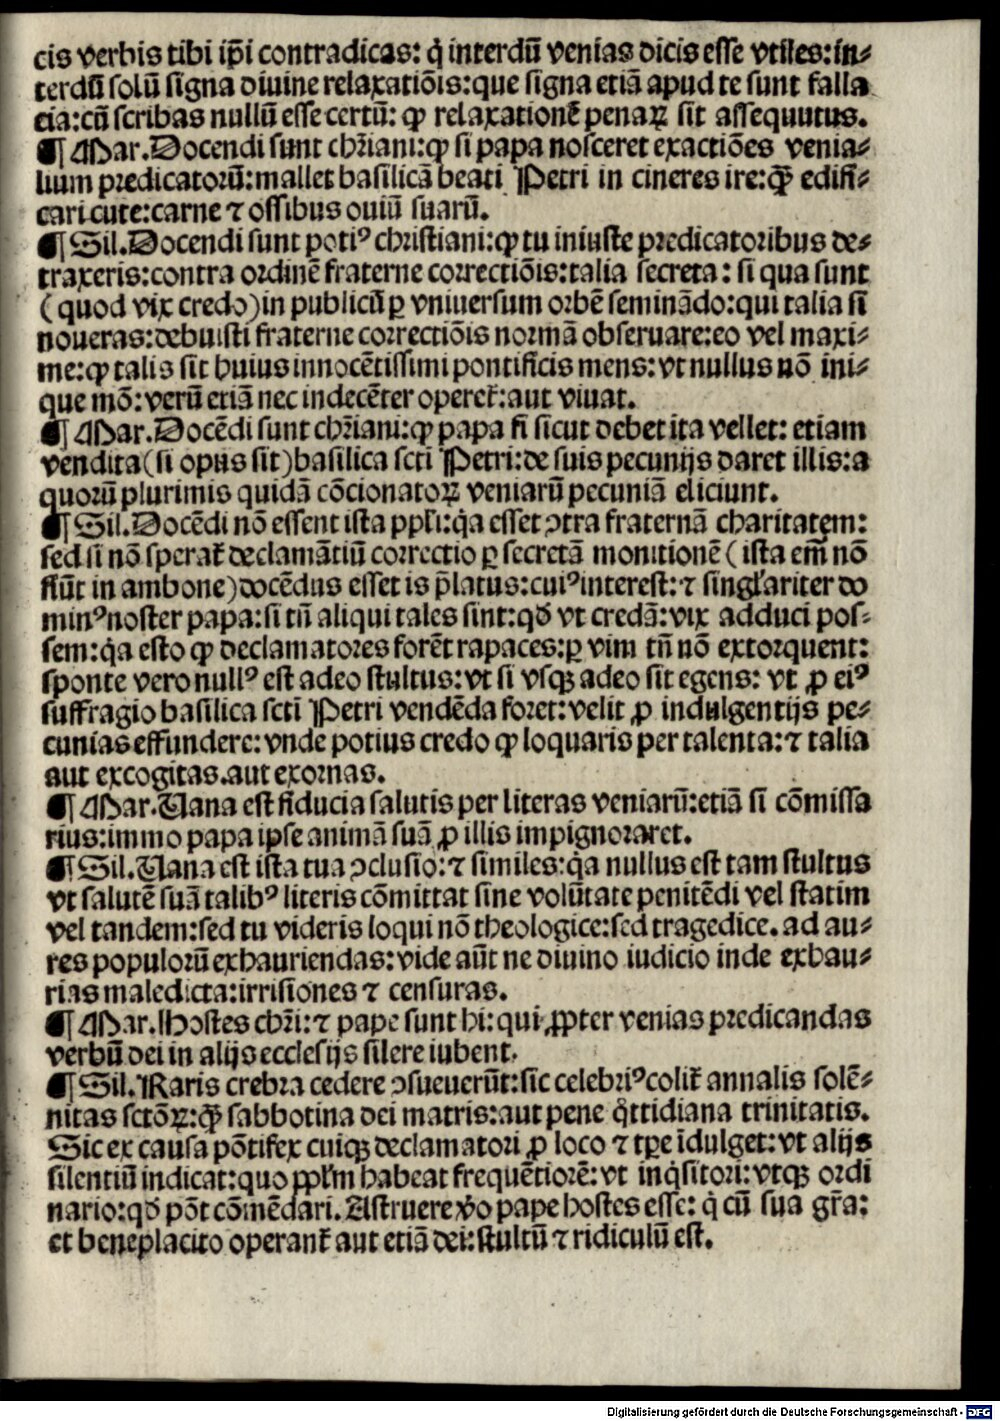 cis verbis tibi ip̄i contradicas: q̇ interdū venias dicis esse vtiles: in⸗
terdū solū signa diuine relaxatiōis: que signa etiā apud te sunt falla
cia: cū scribas nullū esse certū: ꝙ relaxationē penaꝝ sit assequutus.
¶ Mar. Docendi sunt chr̄iani: ꝙ si papa nosceret exactiōes venia⸗
lium predicatorū: mallet basilicā beati Petri in cineres ire: ꝙ̄ edifi⸗
cari cute: carne ⁊ ossibus ouiū suarū.
¶ Sil. Docendi sunt potiꝰ christiani: ꝙ tu iniuste predicatoribus de⸗
traxeris: contra ordinē fraterne correctiōis: talia secreta: si qua sunt
(quod vix credo) in publicū ꝑ vniuersum orbē seminādo: qui talia si
noueras: debuisti fraterne correctiōis normā obseruare: eo vel maxi⸗
me: ꝙ talis sit huius innocētissimi pontificis mens: vt nullus nō ini⸗
que mō: verū etiā nec indecēter operet̄: aut viuat.
¶ Mar. Docēdi sunt chr̄iani: ꝙ papa si sicut debet ita vellet: etiam
vendita (si opus sit) basilica scti Petri: de suis pecunijs daret illis: a
quorū plurimis quidā cōcionatoꝝ veniarū pecuniā eliciunt.
¶ Sil. Docēdi nō essent ista ppl̄i: q̇a esset ↄtra fraternā charitatem:
sed si nō sperat̄ declamātiū correctio ꝑ secretā monitionē (ista em̄ nō
fiūt in ambone) docēdus esset is p̄latus: cuiꝰ interest: ⁊ singl̄ariter do
minꝰ noster papa: si tn̄ aliqui tales sint: qd̄ vt credā: vix adduci pos⸗
sem: q̇a esto ꝙ declamatores forēt rapaces: ꝑ vim tn̄ nō extorquent:
sponte vero nullꝰ est adeo stultus: vt si vsqꝫ adeo sit egens: vt ꝓ eiꝰ
suffragio basilica scti Petri vendēda foret: velit ꝓ indulgentijs pe⸗
cunias effundere: vnde potius credo ꝙ loquaris per talenta: ⁊ talia
aut excogitas. aut exornas.
¶ Mar. Vana est fiducia salutis per literas veniarū: etiā si cōmissa
rius: immo papa ipse animā suā ꝓ illis impignoraret.
¶ Sil. Vana est ista tua ↄclusio: ⁊ similes: q̇a nullus est tam stultus
vt salutē suā talibꝰ literis cōmittat sine volūtate penitēdi vel statim
vel tandem: sed tu videris loqui nō theologice: sed tragedice. ad au⸗
res populorū exhauriendas: vide aūt ne diuino iudicio inde exhau⸗
rias maledicta: irrisiones ⁊ censuras.
¶ Mar. Hostes chr̄i: ⁊ pape sunt hi: qui ꝓpter venias predicandas
verbū dei in alijs ecclesijs silere iubent.
¶ Sil. Raris crebra cedere ↄsueuerūt: sic celebriꝰ colit̄ annalis solē⸗
nitas sctōꝝ: ꝙ̄ sabbotina dei matris: aut pene q̇ttidiana trinitatis.
Sic ex causa pōtifex cuiqꝫ declamatori ꝓ loco ⁊ tp̄e īdulget: vt alijs
silentiū indicat: quo ppl̄m habeat frequētiorē: vt inq̇sitori: vtqꝫ ordi
nario: qd̄ pōt cōmēdari. Astruere v̓o pape hostes esse: q̇ cū sua gr̄a:
et beneplacito operant̄ aut etiā dei: stultū ⁊ ridiculū est.
Digitalisierung gefördert durch die Deutsche Forschungsgemeinschaft - DFG